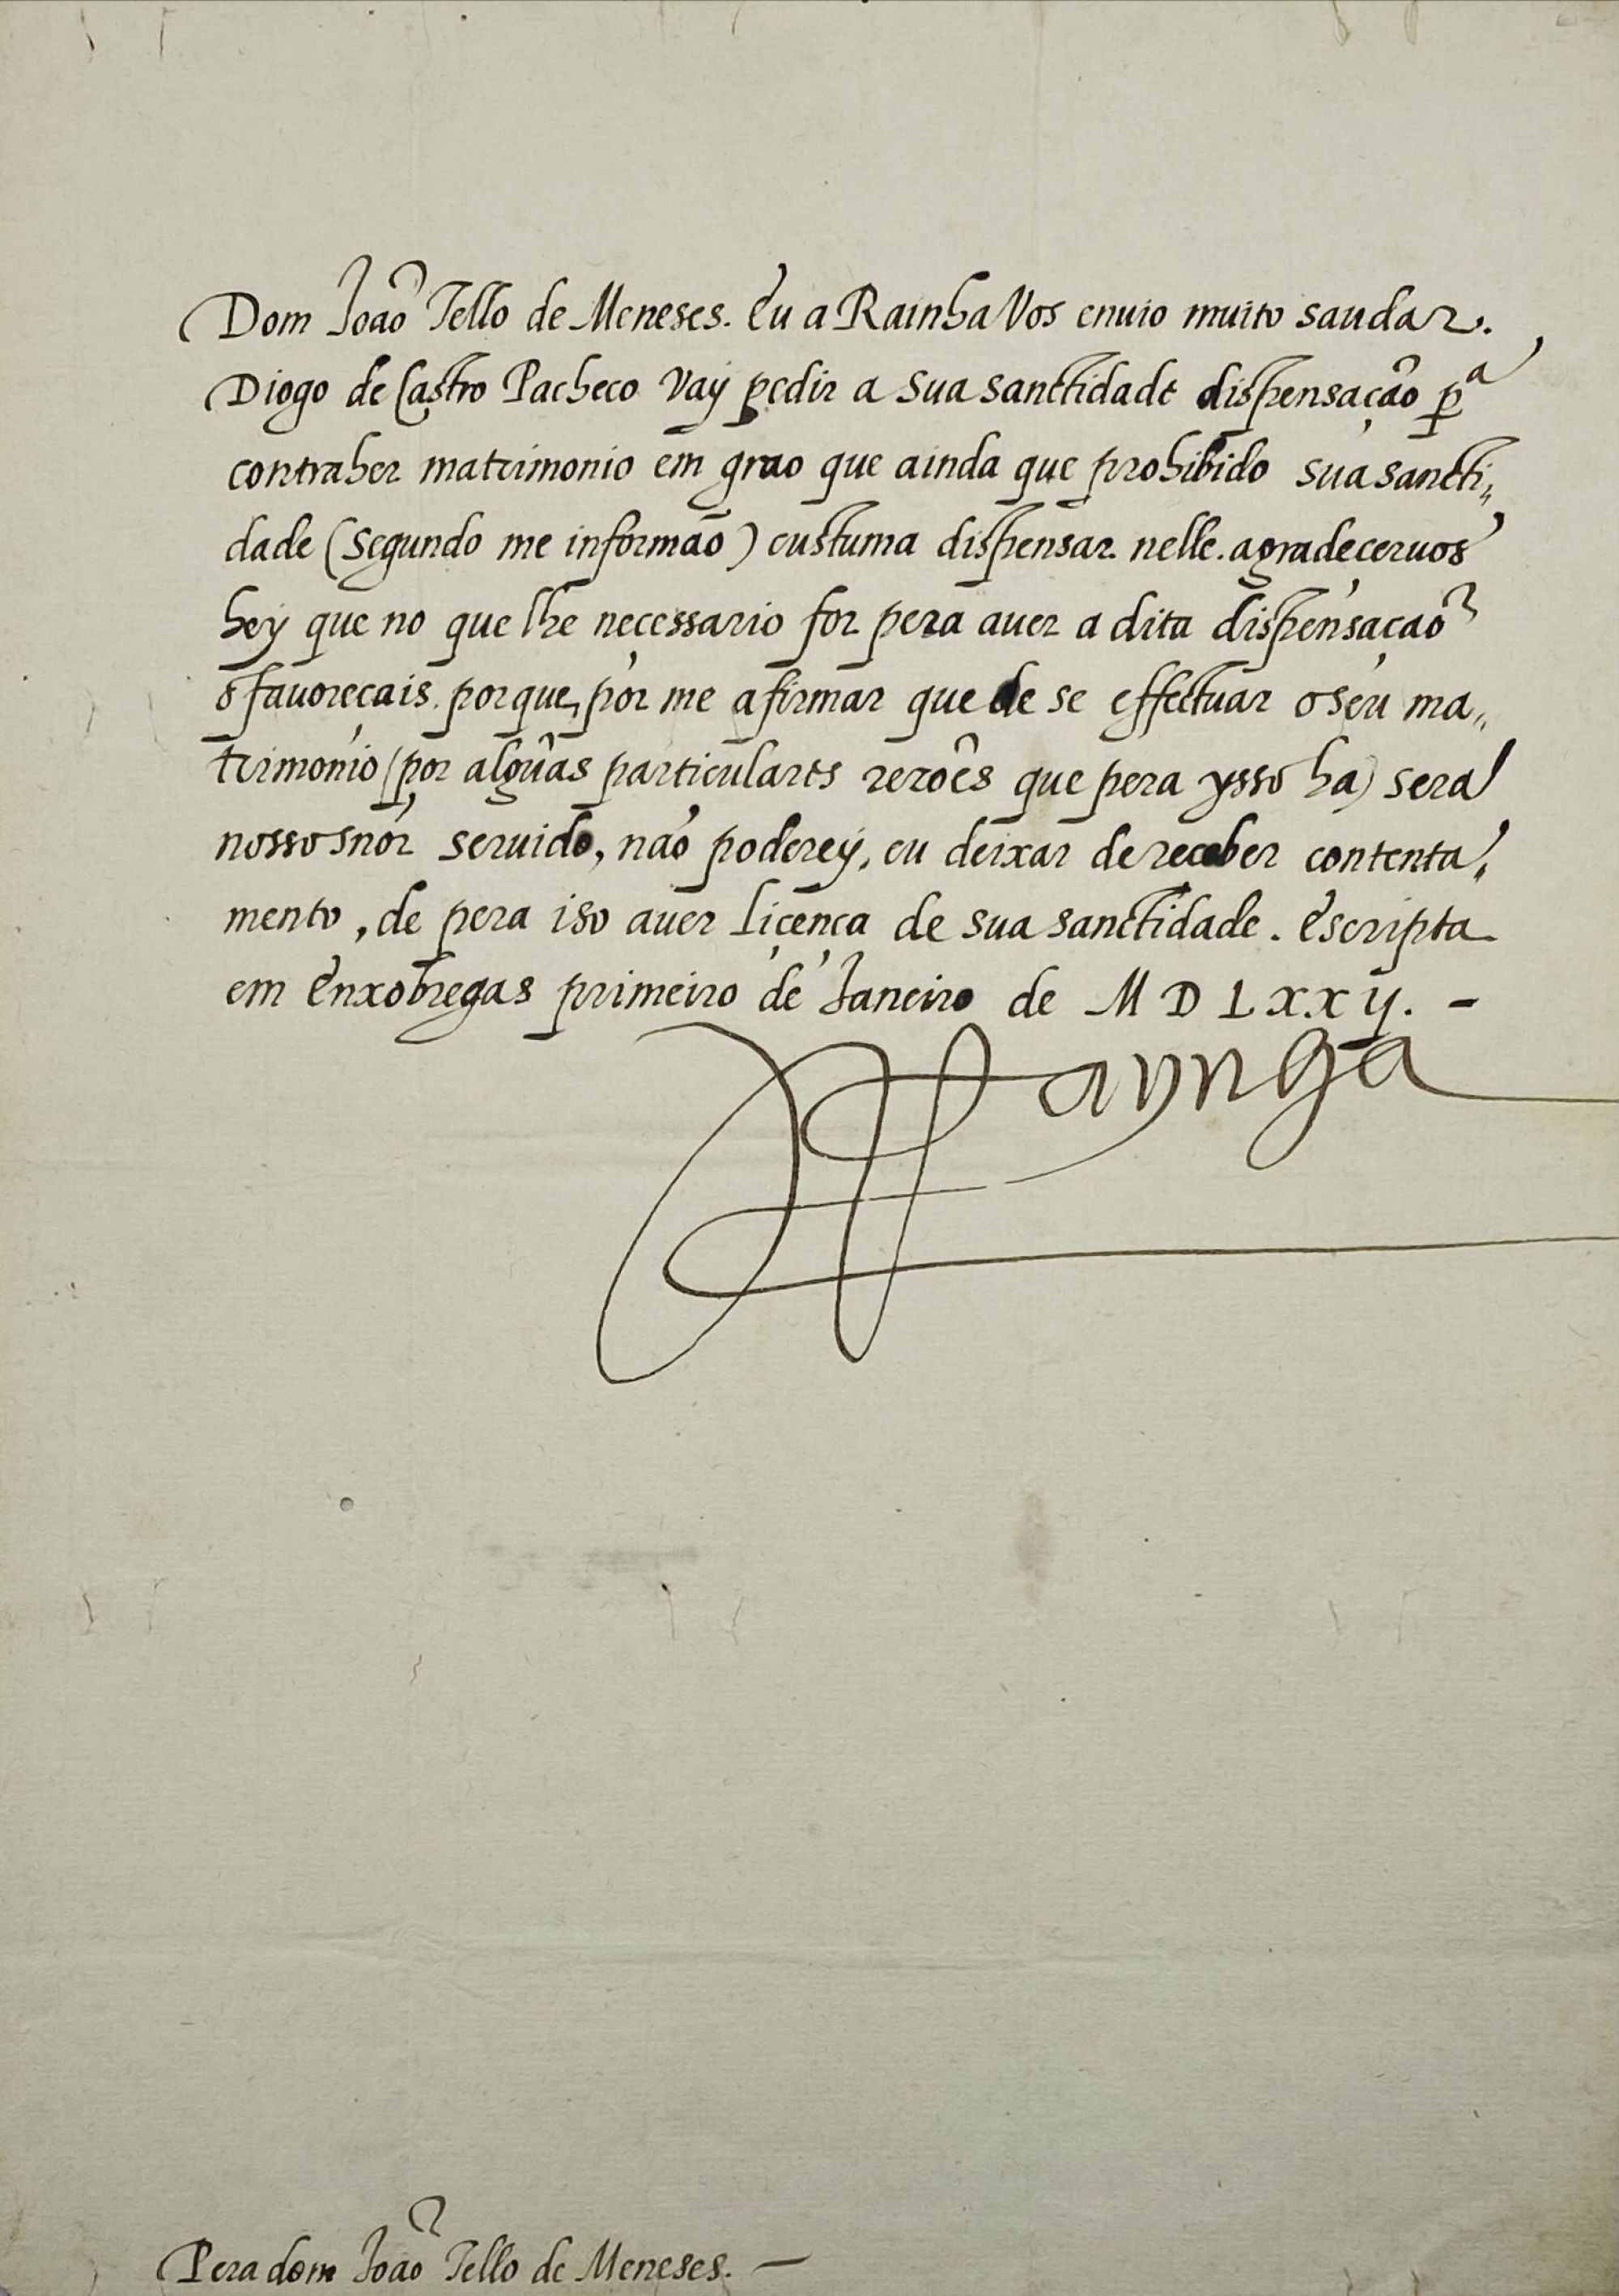 Dom João Tello de Meneses. Eu a Rainha Vos enuio muito saudar.
Diogo de Castro Pacheco vay pedir a sua sanctidade dispensação pª
contraher matrimonio em grao que ainda que prohibido sua sancti„
dade (segundo me informão) custuma dispensar nelle. agradeceruos
hey que no que lhe necessario for pera auer a dita dispensação
o fauoreçais. porque, por me afirmar que de se effectuar o seu ma„
trimonio (por algũas particulares rezoẽs que pera ysso ha) sera
nosso snõr seruido, não poderey, eu deixar de receber contenta„
mento, de pera iso auer liçença de sua sanctidade. escripta
em enxobregas primeiro de Janeiro de M D L x x ij. -
Raynha
Pera dom João Tello de Meneses. —